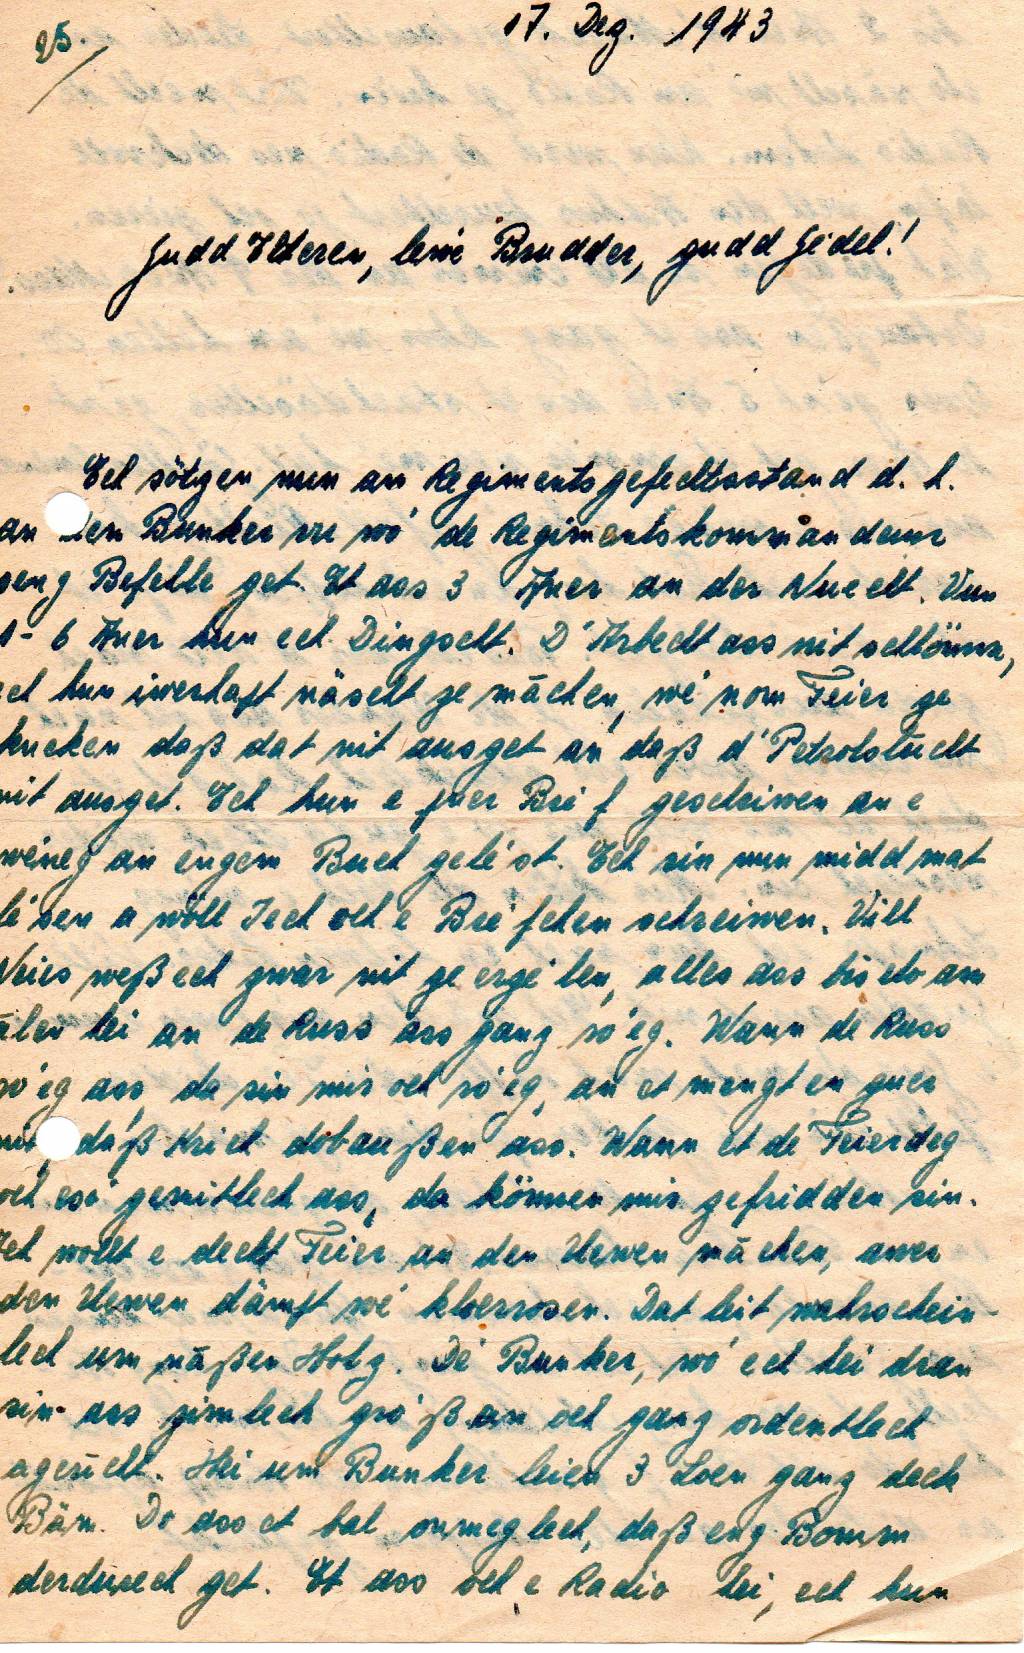 25.
17. Dez. 1943
Gudd Elteren, lewe Brudder, gudd Jedel!
Ech sötzen nun am Regimentsgefechtsstand d. h.
an den Bunker vu wó de Regimentskommandeur
seng Befehle get. Et ass 3 Auer an der Nuecht. Vun
1-6 Auer hun ech Dingscht. D'Arbecht ass nit schlömm,
ech hun iwerhapt näscht ze māchen, wé nom Feier ze
kucken daß dat nit ausget an daß d'Petrolslücht
nit ausget. Ech hun e puer Bréf geschriwen an e
wéineg an engem Buch gelé'st. Ech sin nun midd mat
lé'sen a wöll Iech och e Bréfchen schreiwen. Vill
Neies weß ech zwar nit ze erzé'len, alles ass bis elo am
ālen hei an de Russ ass ganz ró'eg. Wann de Russ
ró'eg ass, da sin mir och ró'eg, an et mengt en guer
nit, daß Krich dobaußen ass. Wann et de Feierdeg
och esó gemitlech ass, da können mir zefridden sin.
Ech wollt e decht Feier an den Uewen māchen, awer
den Uewen dämft wé kloerrosen. Dat leit wahrschein-
lech um nāßen Holz. Dé Bunker, wó ech hei dran
sin ass zimlech gró'ß an och ganz ordentlech
agericht. Hei um Bunker leien 3 Loen ganz deck
Bäm. Do ass et bal onmeglech, daß eng Bomm
derduerch get. Et ass och e Radio hei, ech hun